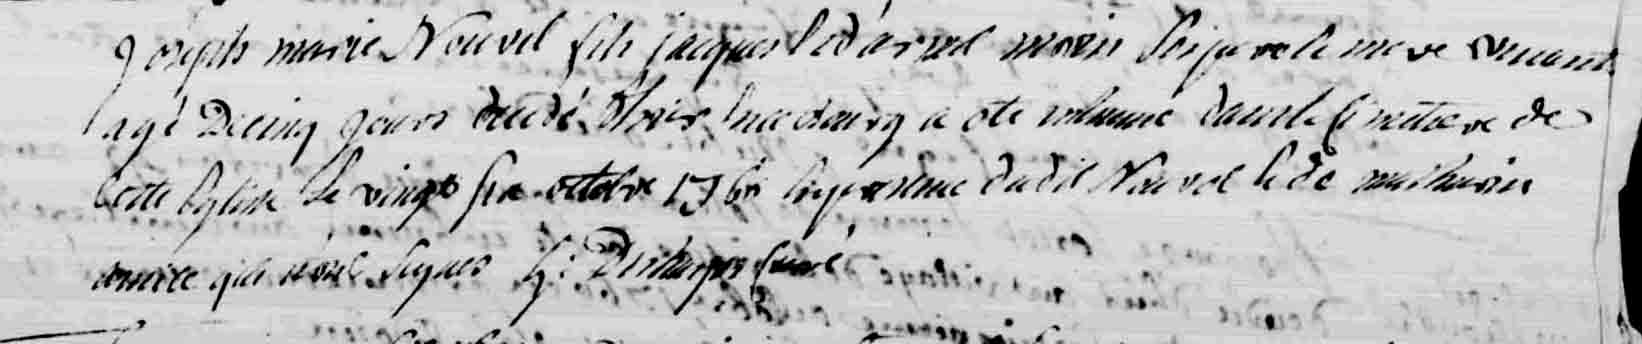 joseph marie Nouvel fils jacques & d'anne morin ses pere & mere vivants
agé De cinq jours decedé hier au bourg a ete inhumé dans le cimetiere de
cette Eglise le vingt six octobre 176 en presence dudit Nouvel & de mathurin
qui n'ont signes Curé